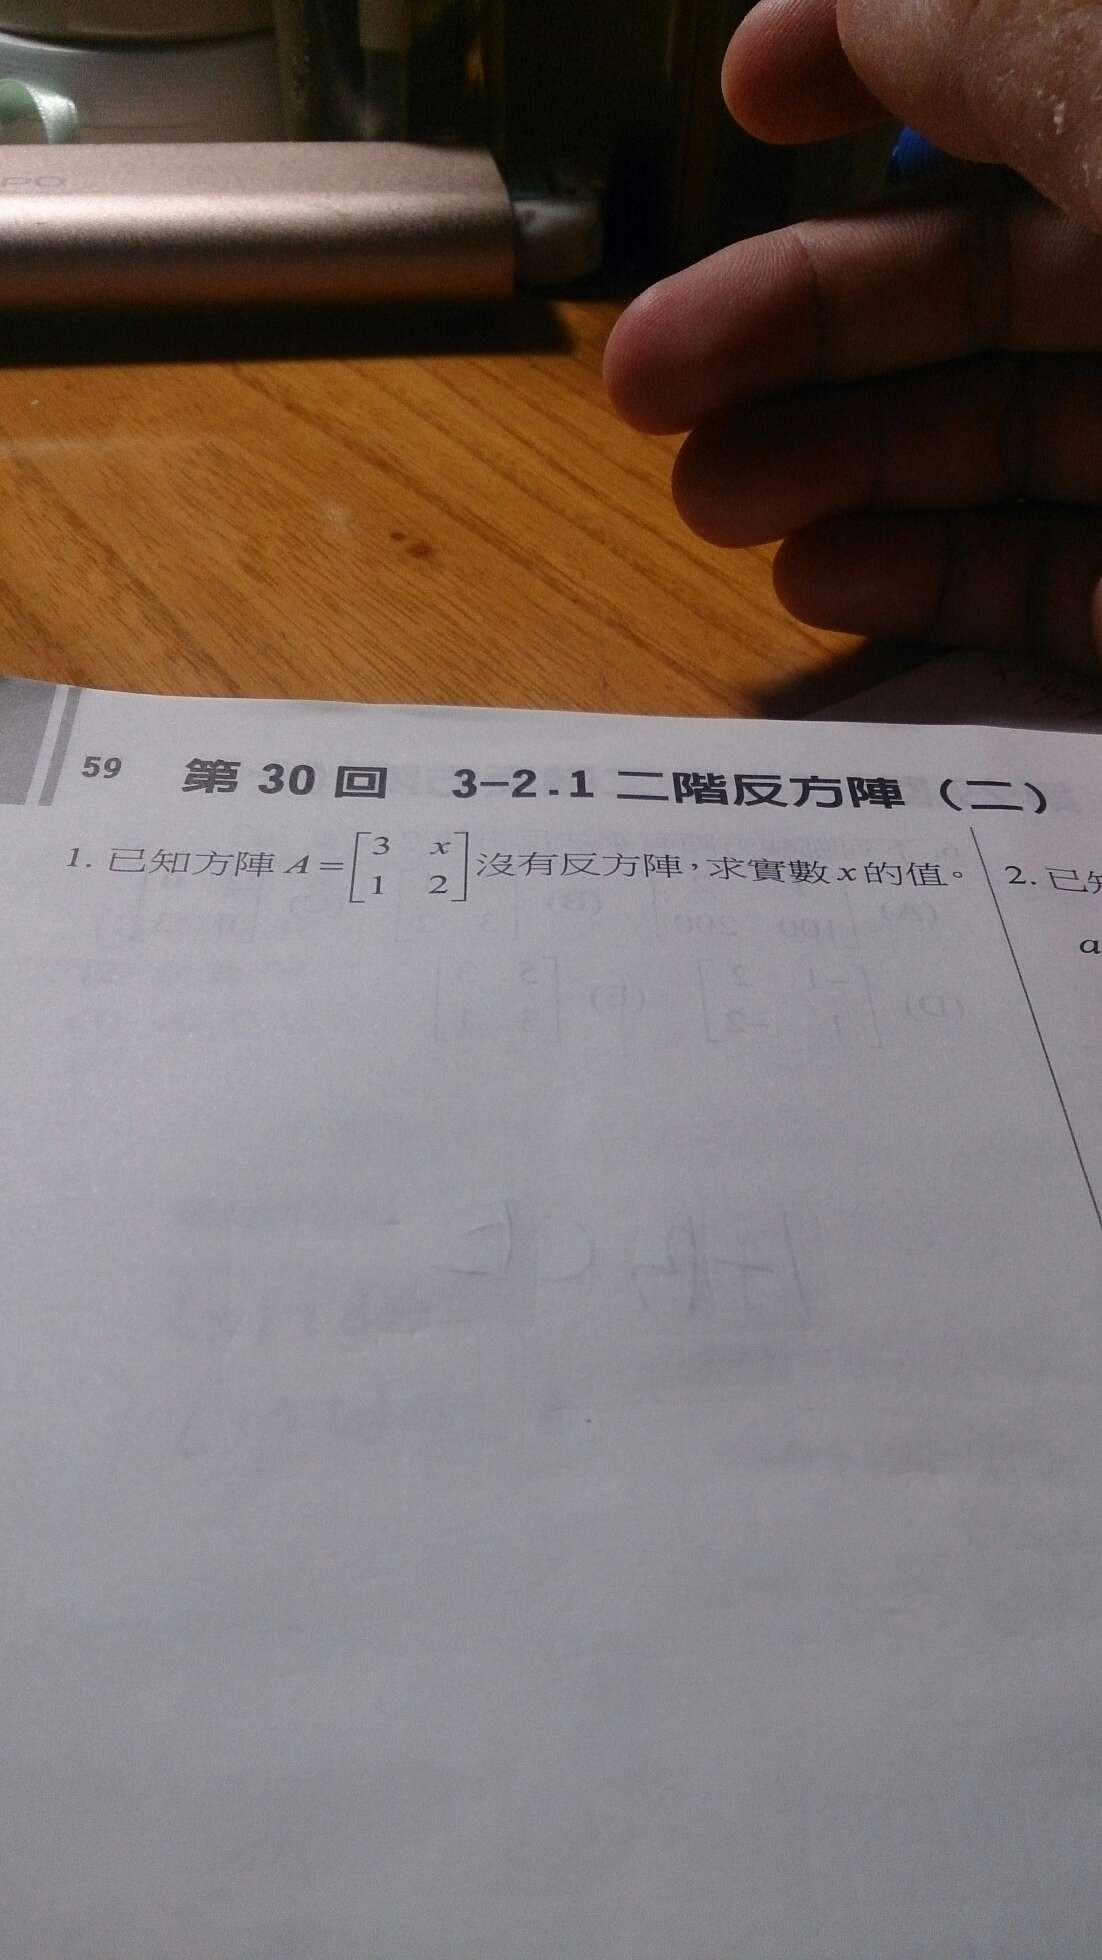 PO
59 第 30 回 3-2.1 二階反方陣（二）
1. 已知方陣 A = [3 x 1 2] 沒有反方陣，求實數 x 的值。
2. 已知
a